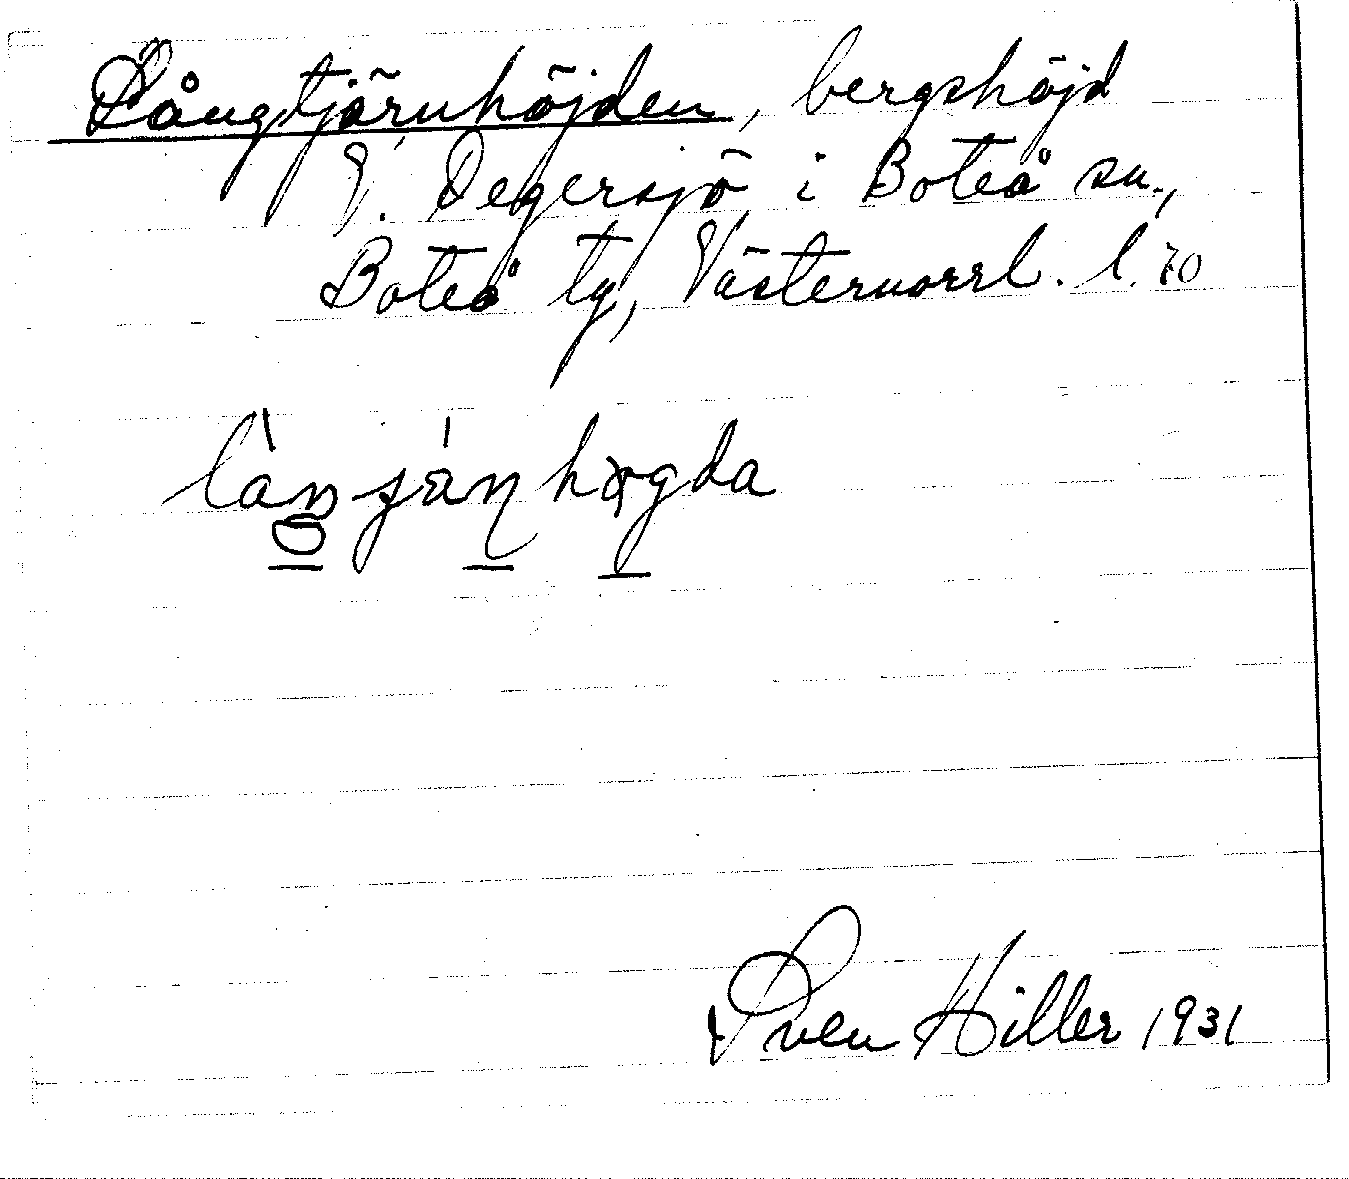 Långtjärnhöjden, bergshöjd
V. Degersjö i Boteå sn.,
Boteå tg, Västernorrl. l. 70
Sven Hiller 1931